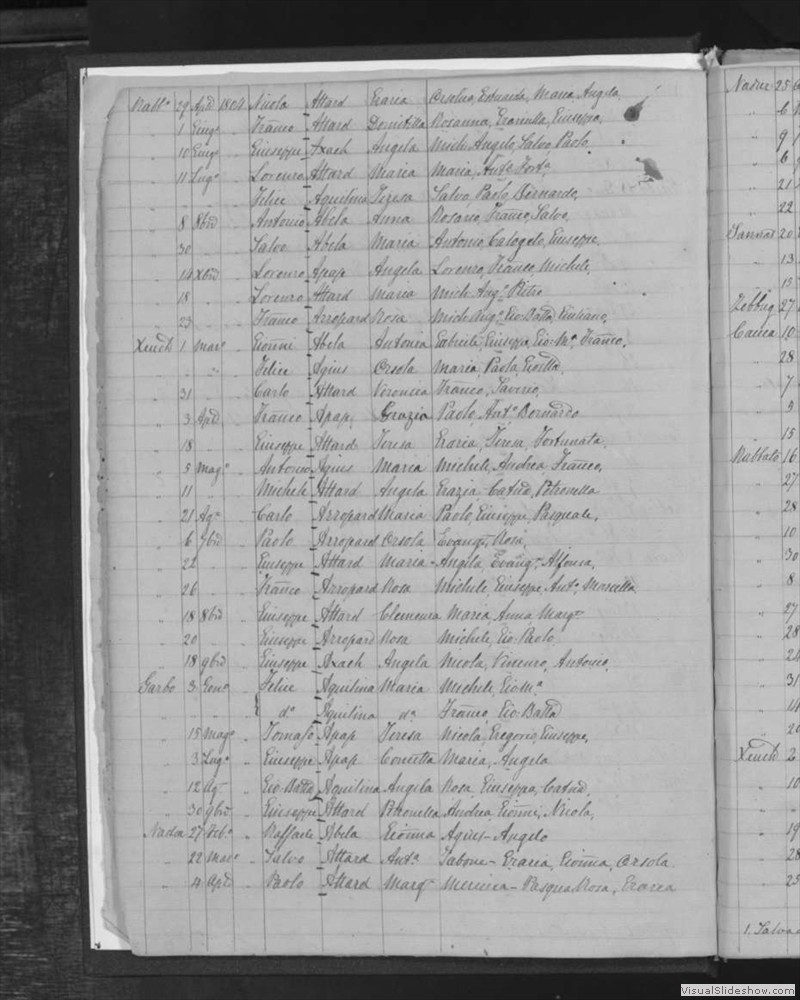 Rabt.o 29 Apl 1804 Nicola Attard Grazia Orsolia, Edvarda, Maria Angela
" 1 Giug.o " Franco Attard Domitilla Rosanna, Graziulla, Giuseppe,
" 10 Giug.o " Giuseppe Axach Angela Mich Angelo, Salvo Paolo
" 11 Lug.o " Lorenzo Attard Maria Maria, Ant.o Fort.a
" " " Felice Aquilina Teresa Salvo, Paolo, Bernardo,
" 8 8bre " Antonio Abela Anna Rosario, Franco, Salvo,
" 30 " " Salvo Abela Maria Antonio, Calogelo, Giuseppe
" 14 Xbre " Lorenzo Apap Angela Lorenzo, Franco, Michele,
" 18 " " Lorenzo Attard Maria Mich Ang.o Pietro
" 23 " " Franco Arropard Rosa Mich Ang.o Gio Batta, Giuliano,
Xeuch 1 Mar.o " Gionni Abela Antonia Gabriele, Giuseppe, Gio M.a Franco,
" " " Felice Agius Orsola Maria, Paola,
" 31 " " Carlo Attard Veronica Franco, Saverio,
" 3 Apl " Franco Apap, Grazia Paolo, Ant.o Bernardo
" 18 " " Giuseppe Attard Teresa Grazia, Teresa, Fortunata,
" 5 Mag.o " Antonio Agius Maria Michele, Andrea, Franco,
" 11 " Michele Attard Angela Grazia, Catna, Petronella
" 21 Ag.o " Carlo Arropard Maria Paolo, Giuseppe, Pasquale,
" 6 7bre " Paolo Arropard Orsola Evang.a, Rosa,
" 22 " " Giuseppe Attard Maria Angela, Evang.a, Alfonsa,
" 26 " " Franco Arropard Rosa Michele, Giuseppe, Ant.o, Marcello
" 18 8bre " Giuseppe Attard Clemenza Maria, Anna, Marg.a
" 20 " " Giuseppe Arropard Rosa Michele, Gio Paolo
" 18 9bre " Giuseppe Axach Angela Nicola, Vincenzo, Antonio,
Garbo 3 Gen.o " Felice Aquilina Maria Michele, Gio M.a
" " " d.o Aquilina d.o Franco, Gio Batta
" 15 Mag.o " Tomaso Apap Teresa Nicola, Gregorio, Giuseppe,
" 3 Lug.o " Giuseppe Apap Concetta Maria, Angela
" 12 Ag.o " Gio Batta Aquilina Angela Rosa, Giuseppa, Catna,
" 30 9bre " Giuseppe Attard Petronella Andrea, Gionni, Nicola,
Nadur 27 Feb.o " Raffaele Abela Gionna Agius - Angelo
" 22 Mar.o " Salvo Attard Ant.a Tabone - Grazia, Gionna, Orsola
" 4 Apl " Paolo Attard Marg.a Mercieca - Pasqua Rosa, Grazia
Nadur 25
" 6
" 9
" 6
" 21
" 22
Sannat 20
" 13
" 15
Zebbug 27
Caccia 10
" 28
" 7
" 9
" 15
Rabbato 16
" 27
" 28
" 10
" 30
" 8
" 27
" 28
" 24
" 31
" 14
Xeuch 2
" 10
" 19
" 28
" 25
1. Salvo
VisualSlideshow.com